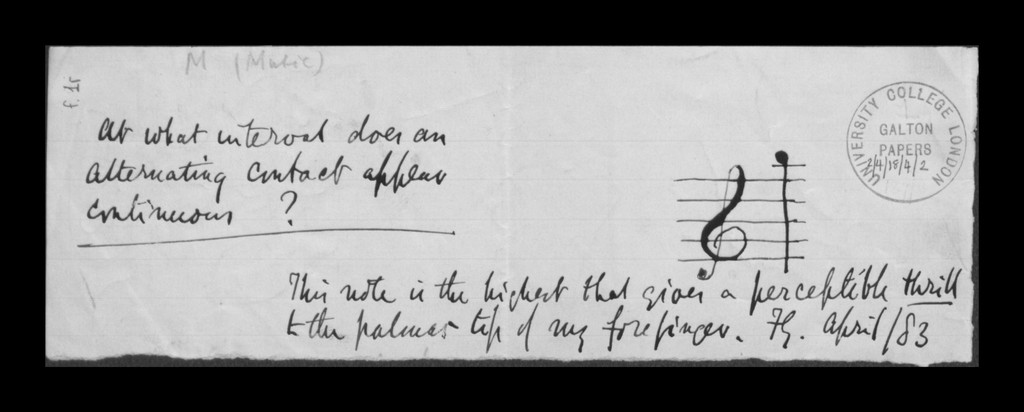 M (Music)
f. 1r
At what interval does an
alternating contact appear
continuous ?
UNIVERSITY COLLEGE LONDON
GALTON
PAPERS
2/4/18/4/2
This note is the highest that gives a perceptible thrill
to the palmar tip of my forefinger. FG. April/83